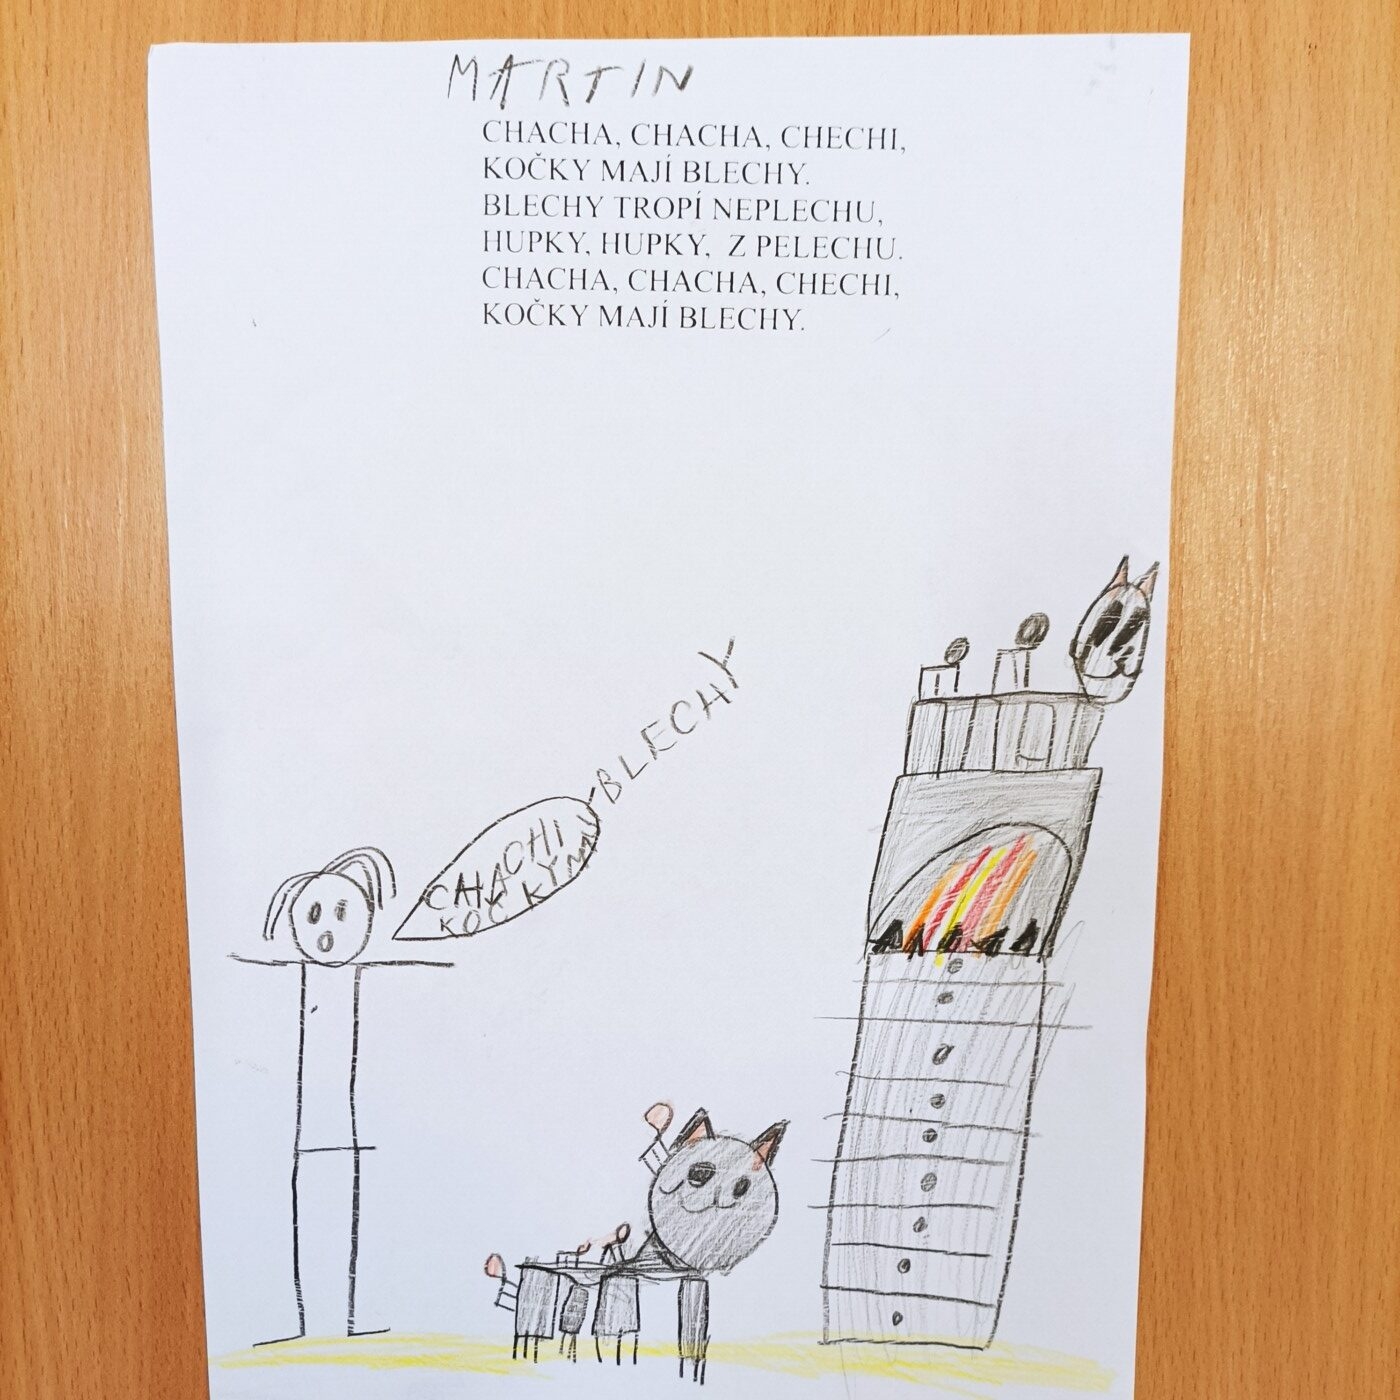 MARTIN
CHACHA, CHACHA, CHECHI,
KOČKY MAJÍ BLECHY.
BLECHY TROPÍ NEPLECHU,
HUPKY, HUPKY, Z PELECHU.
CHACHA, CHACHA, CHECHI,
KOČKY MAJÍ BLECHY.
BLECHY